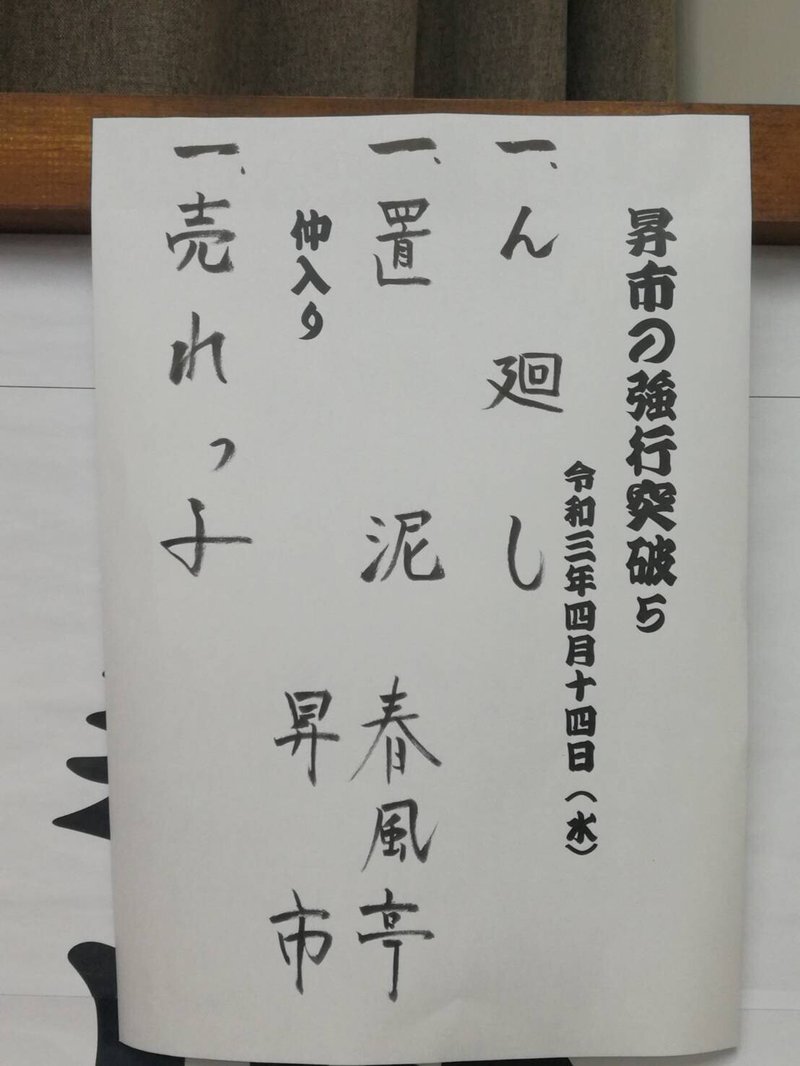 昇市の強行突破5
令和三年四月十四日（水）
一、ん廻し
一、置泥
仲入り
一、売れっ子
春風亭
昇市